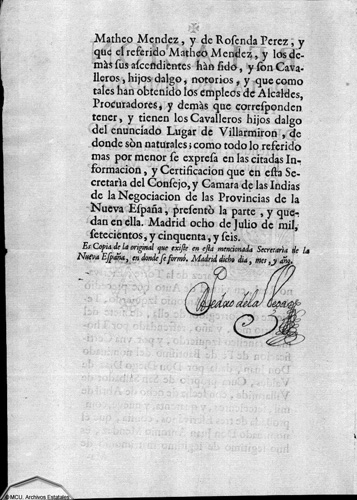 Matheo Mendez, y de Rosenda Perez, y
que el referido Matheo Mendez, y los de-
màs sus ascendientes han sido, y son Cava-
lleros, hijos dalgo, notorios, y que como
tales han obtenido los empleos de Alcaldes,
Procuradores, y demàs que corresponden
tener, y tienen los Cavalleros hijos dalgo
del enunciado Lugar de Villarmiron, de
donde sòn naturales; como todo lo referido
mas por menor se expresa en las citadas In-
formacion, y Certificacion que en esta Se-
cretarìa del Consejo, y Camara de las Indias
de la Negociacion de las Provincias de la
Nueva España, presentò la parte, y que-
dan en ella. Madrid ocho de Julio de mil,
setecientos, y cinquenta, y seis.
Es Copia de la original que existe en esta mencionada Secretarìa de la
Nueva España, en donde se formò. Madrid dicho dia, mes, y año.
Pedro de la
© MCU. Archivos Estatales